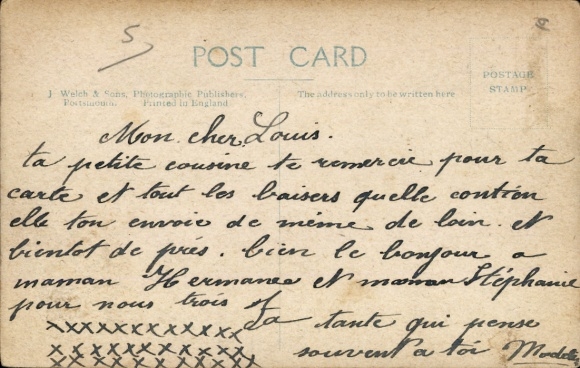 5
POST CARD
J Welch & Sons, Photographic Publishers,
Portsmouth. Printed in England
The address only to be written here
POSTAGE
STAMP.
Mon cher Louis.
ta petite cousine te remercie pour ta
carte et tout les baisers quelle contien
elle ton envoie de même de loin. et
bientot de prés. bien le bonjour a
maman Hermance et maman Stéphanie
pour nous trois
xxxxxxxxxxxxx
Ta tante qui pense
xxxxxxxxxxxxx
souvent a toi
xxxxxxxxxxxxx